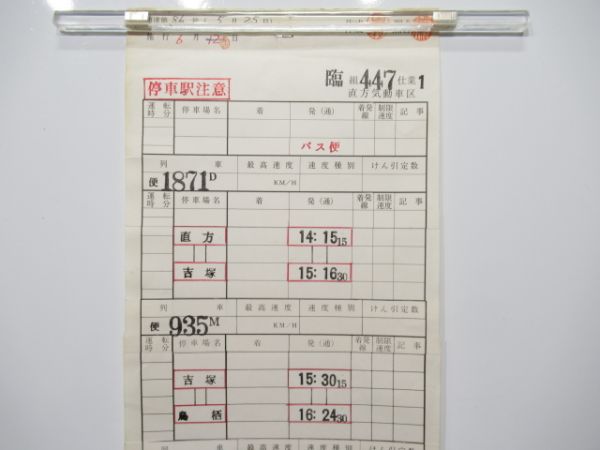 56 5月25日
施行 6月
停車駅注意
臨 組 447 仕業 1
直方気動車区
運転時分 停車場名 着 発(通) 着発線 制限速度 記事
バス便
列車 最高速度 速度種別 けん引定数
便 1871D KM/H
運転時分 停車場名 着 発(通) 着発線 制限速度 記事
直方 14:15 15
吉塚 15:16 30
列車 最高速度 速度種別 けん引定数
便 935M KM/H
運転時分 停車場名 着 発(通) 着発線 制限速度 記事
吉塚 15:30 15
鳥栖 16:24 30
列車 最高速度 速度種別 けん引定数